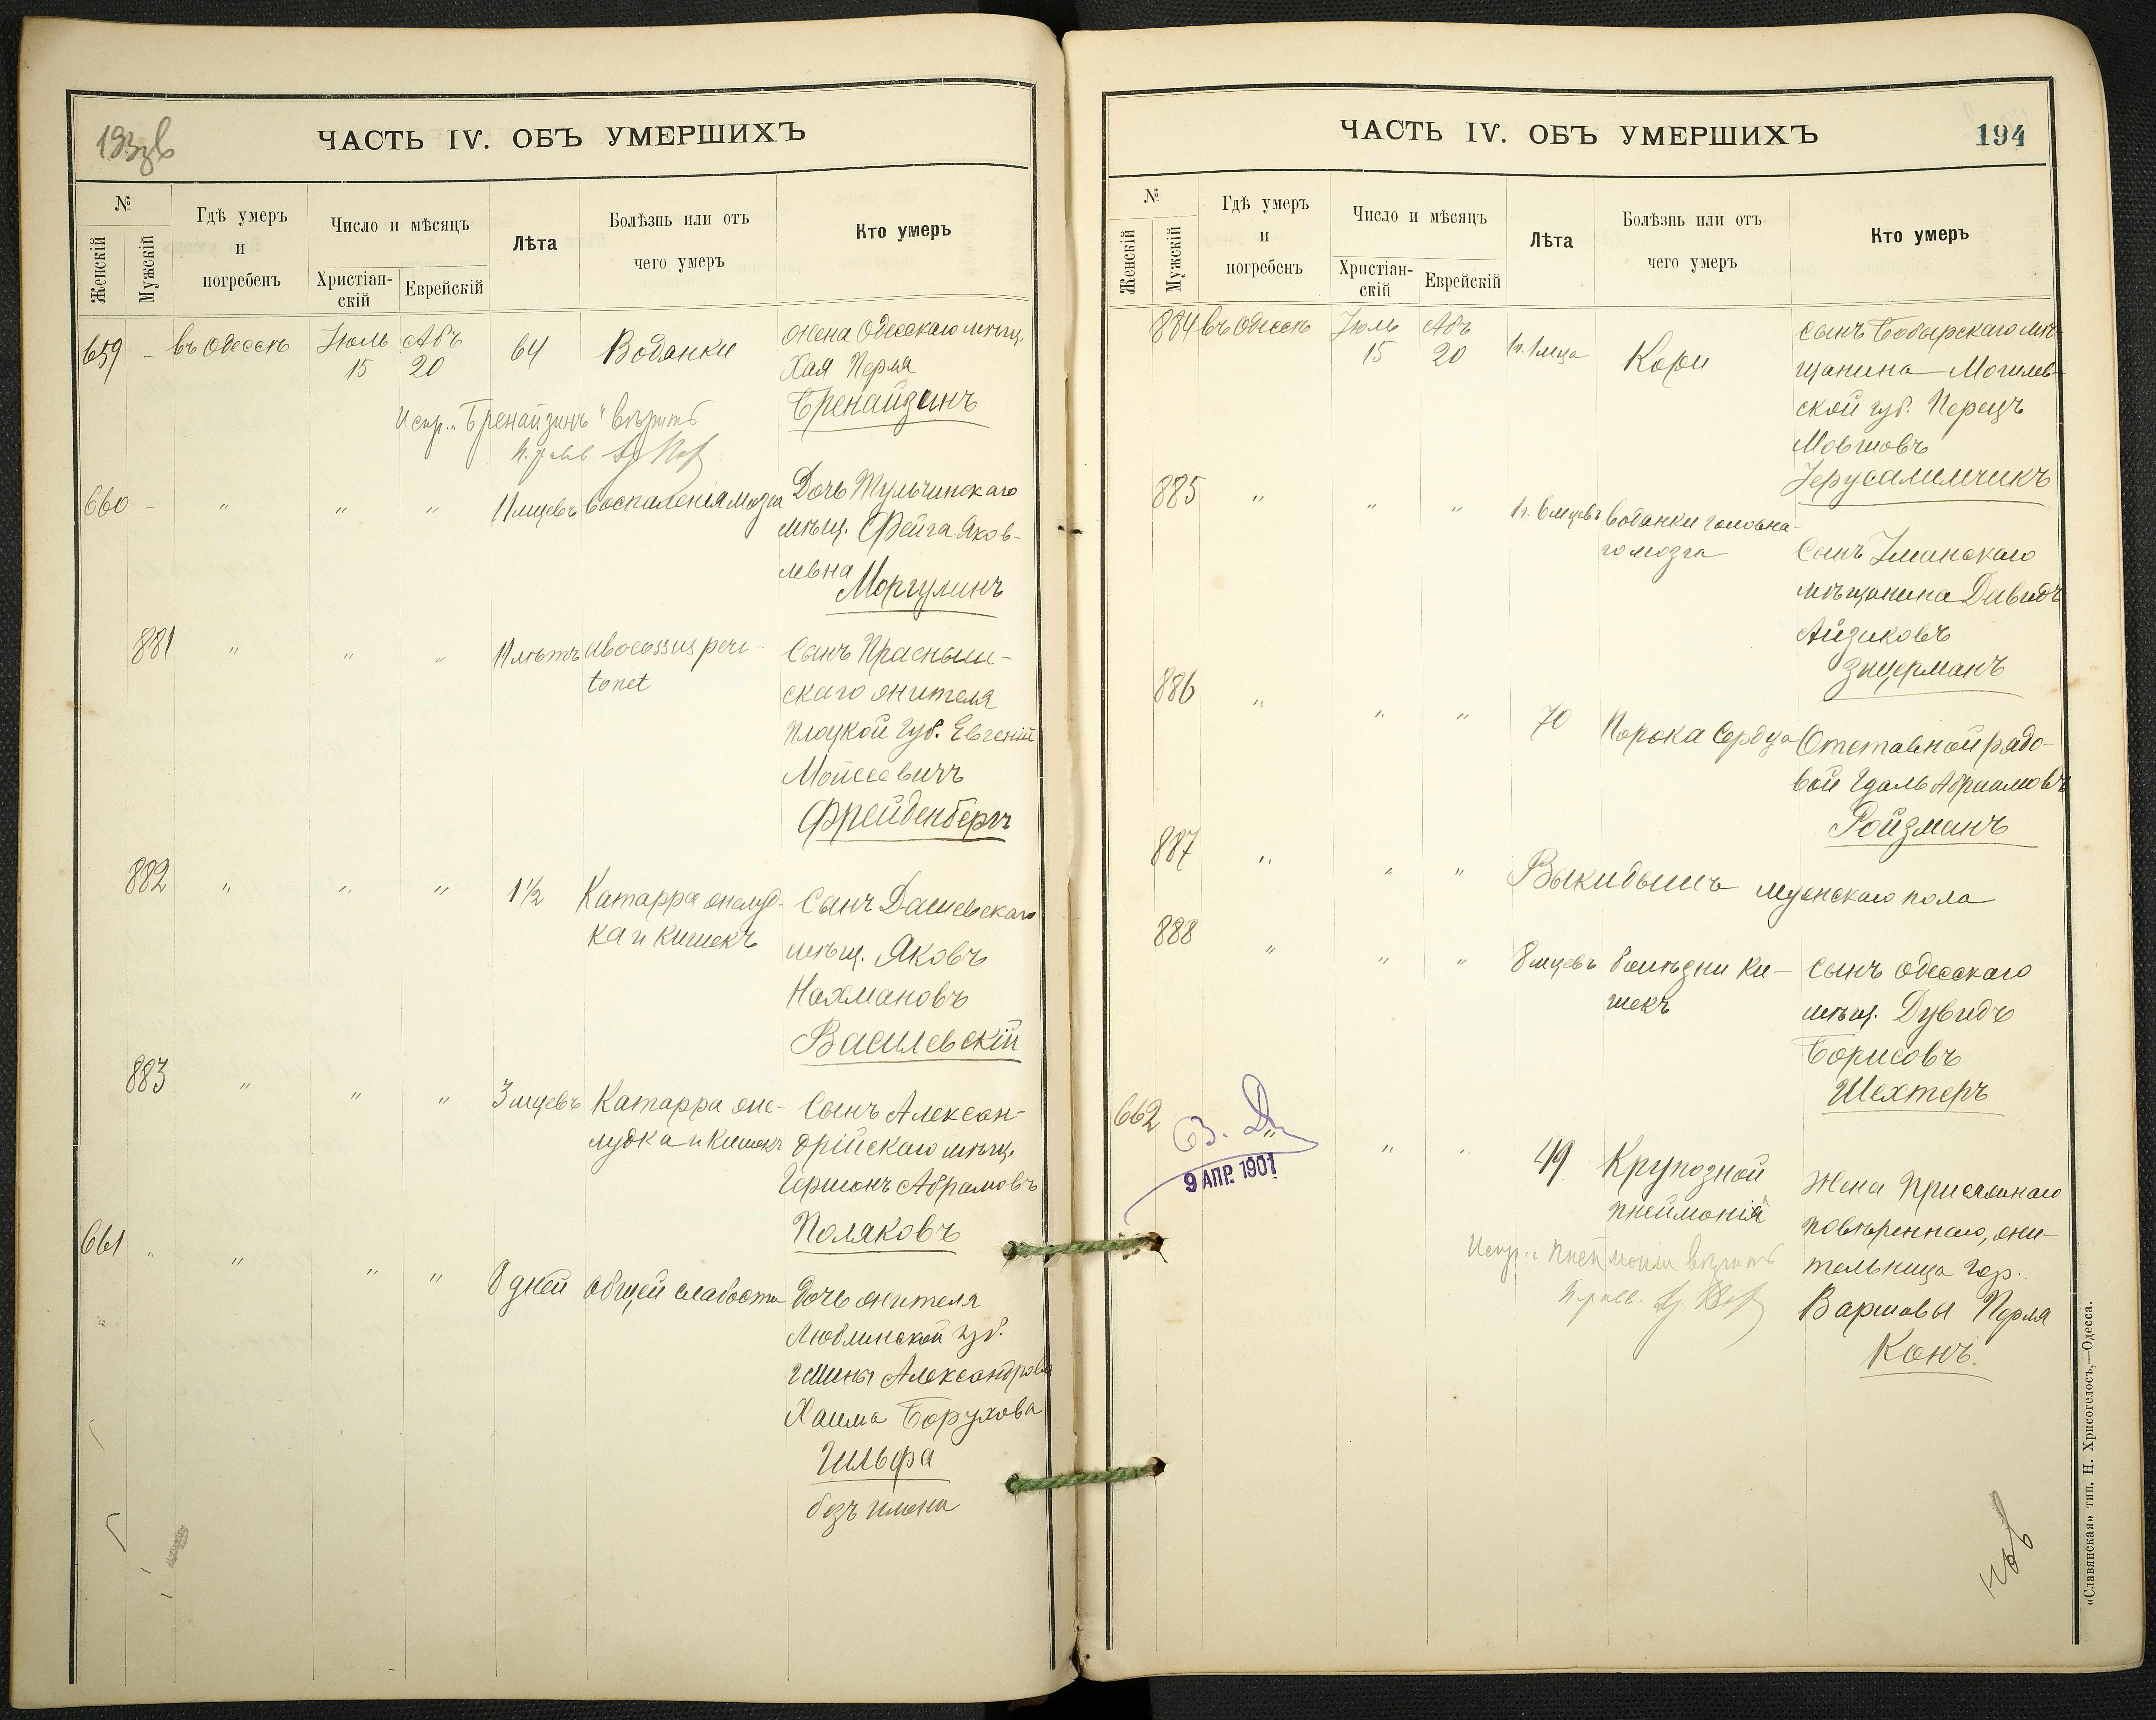 193об
ЧАСТЬ IV. ОБЪ УМЕРШИХЪ
№
Женскій
Мужскій
Гдѣ умеръ
и
погребенъ
Число и мѣсяцъ
Христіан-
скій
Еврейскій
Лѣта
Болѣзнь или отъ
чего умеръ
Кто умеръ
659 – въ Одессѣ Іюль 15 Абъ 20 64 Водянки
жена Одесскаго мѣщ.
Хая Перля
Бренайзинъ
Испр. „Бренайзинъ“ вѣрить
660 – " " " 11 мцевъ воспаленія мозга
Дочь Тульчинскаго
мѣщ. Фейга Яков-
левна
Моргулинъ
881 " " " 11 лѣтъ abscessus peri-
tonet
Сынъ Прасныш-
скаго жителя
Плоцкой Губ. Евгеній
Мойсеевичъ
Фрейденбергъ
882 " " " 1½ Катарра желуд-
ка и кишекъ
Сынъ Дашевскаго
мѣщ. Яковъ
Нахмановъ
Василевскій
883 " " " 3 мцевъ Катарра же-
лудка и кишекъ
Сынъ Алексан-
дрійскаго мѣщ.
Гершонъ Абрамовъ
Поляковъ
661 " " " " 8 дней общей слабости
Дочь жителя
Люблинской губ.
Александрова
Хаима Борухова
Гильфа
безъ имени
ЧАСТЬ IV. ОБЪ УМЕРШИХЪ
194
№
Женскій
Мужскій
Гдѣ умеръ
и
погребенъ
Число и мѣсяцъ
Христіан-
скій
Еврейскій
Лѣта
Болѣзнь или отъ
чего умеръ
Кто умеръ
884 въ Одессѣ Іюль 15 Абъ 20 1г. 1 мца Кори
Сынъ Бобырскаго мѣ-
щанина Могилев-
ской губ. Перецъ
Мовшовъ
Іерусалимчикъ
885 " " " 1г. 6 мцевъ водянки головна-
го мозга
Сынъ Уманскаго
мѣщанина Давидъ
Айзиковъ
Зицерманъ
886 " " " 70 Порока Сердца
Отставной рядо-
вой Гдаль Абрамовъ
Ройзманъ
887 " " " Выкидышъ мужскаго пола
888 " " " 8 мцевъ болѣзни ки-
шекъ
Сынъ Одесскаго
мѣщ. Дувидъ
Борисовъ
Шехтеръ
662 " " " 49 Крупозной
пнеймоніи
Жена Присяжнаго
повѣреннаго, жи-
тельница гор.
Варшавы Перля
Конъ
9 АПР. 1901
Испр. „Пнеймоніи вѣрить
«Славянская» тип. Н. Хрисогелосъ,—Одесса.